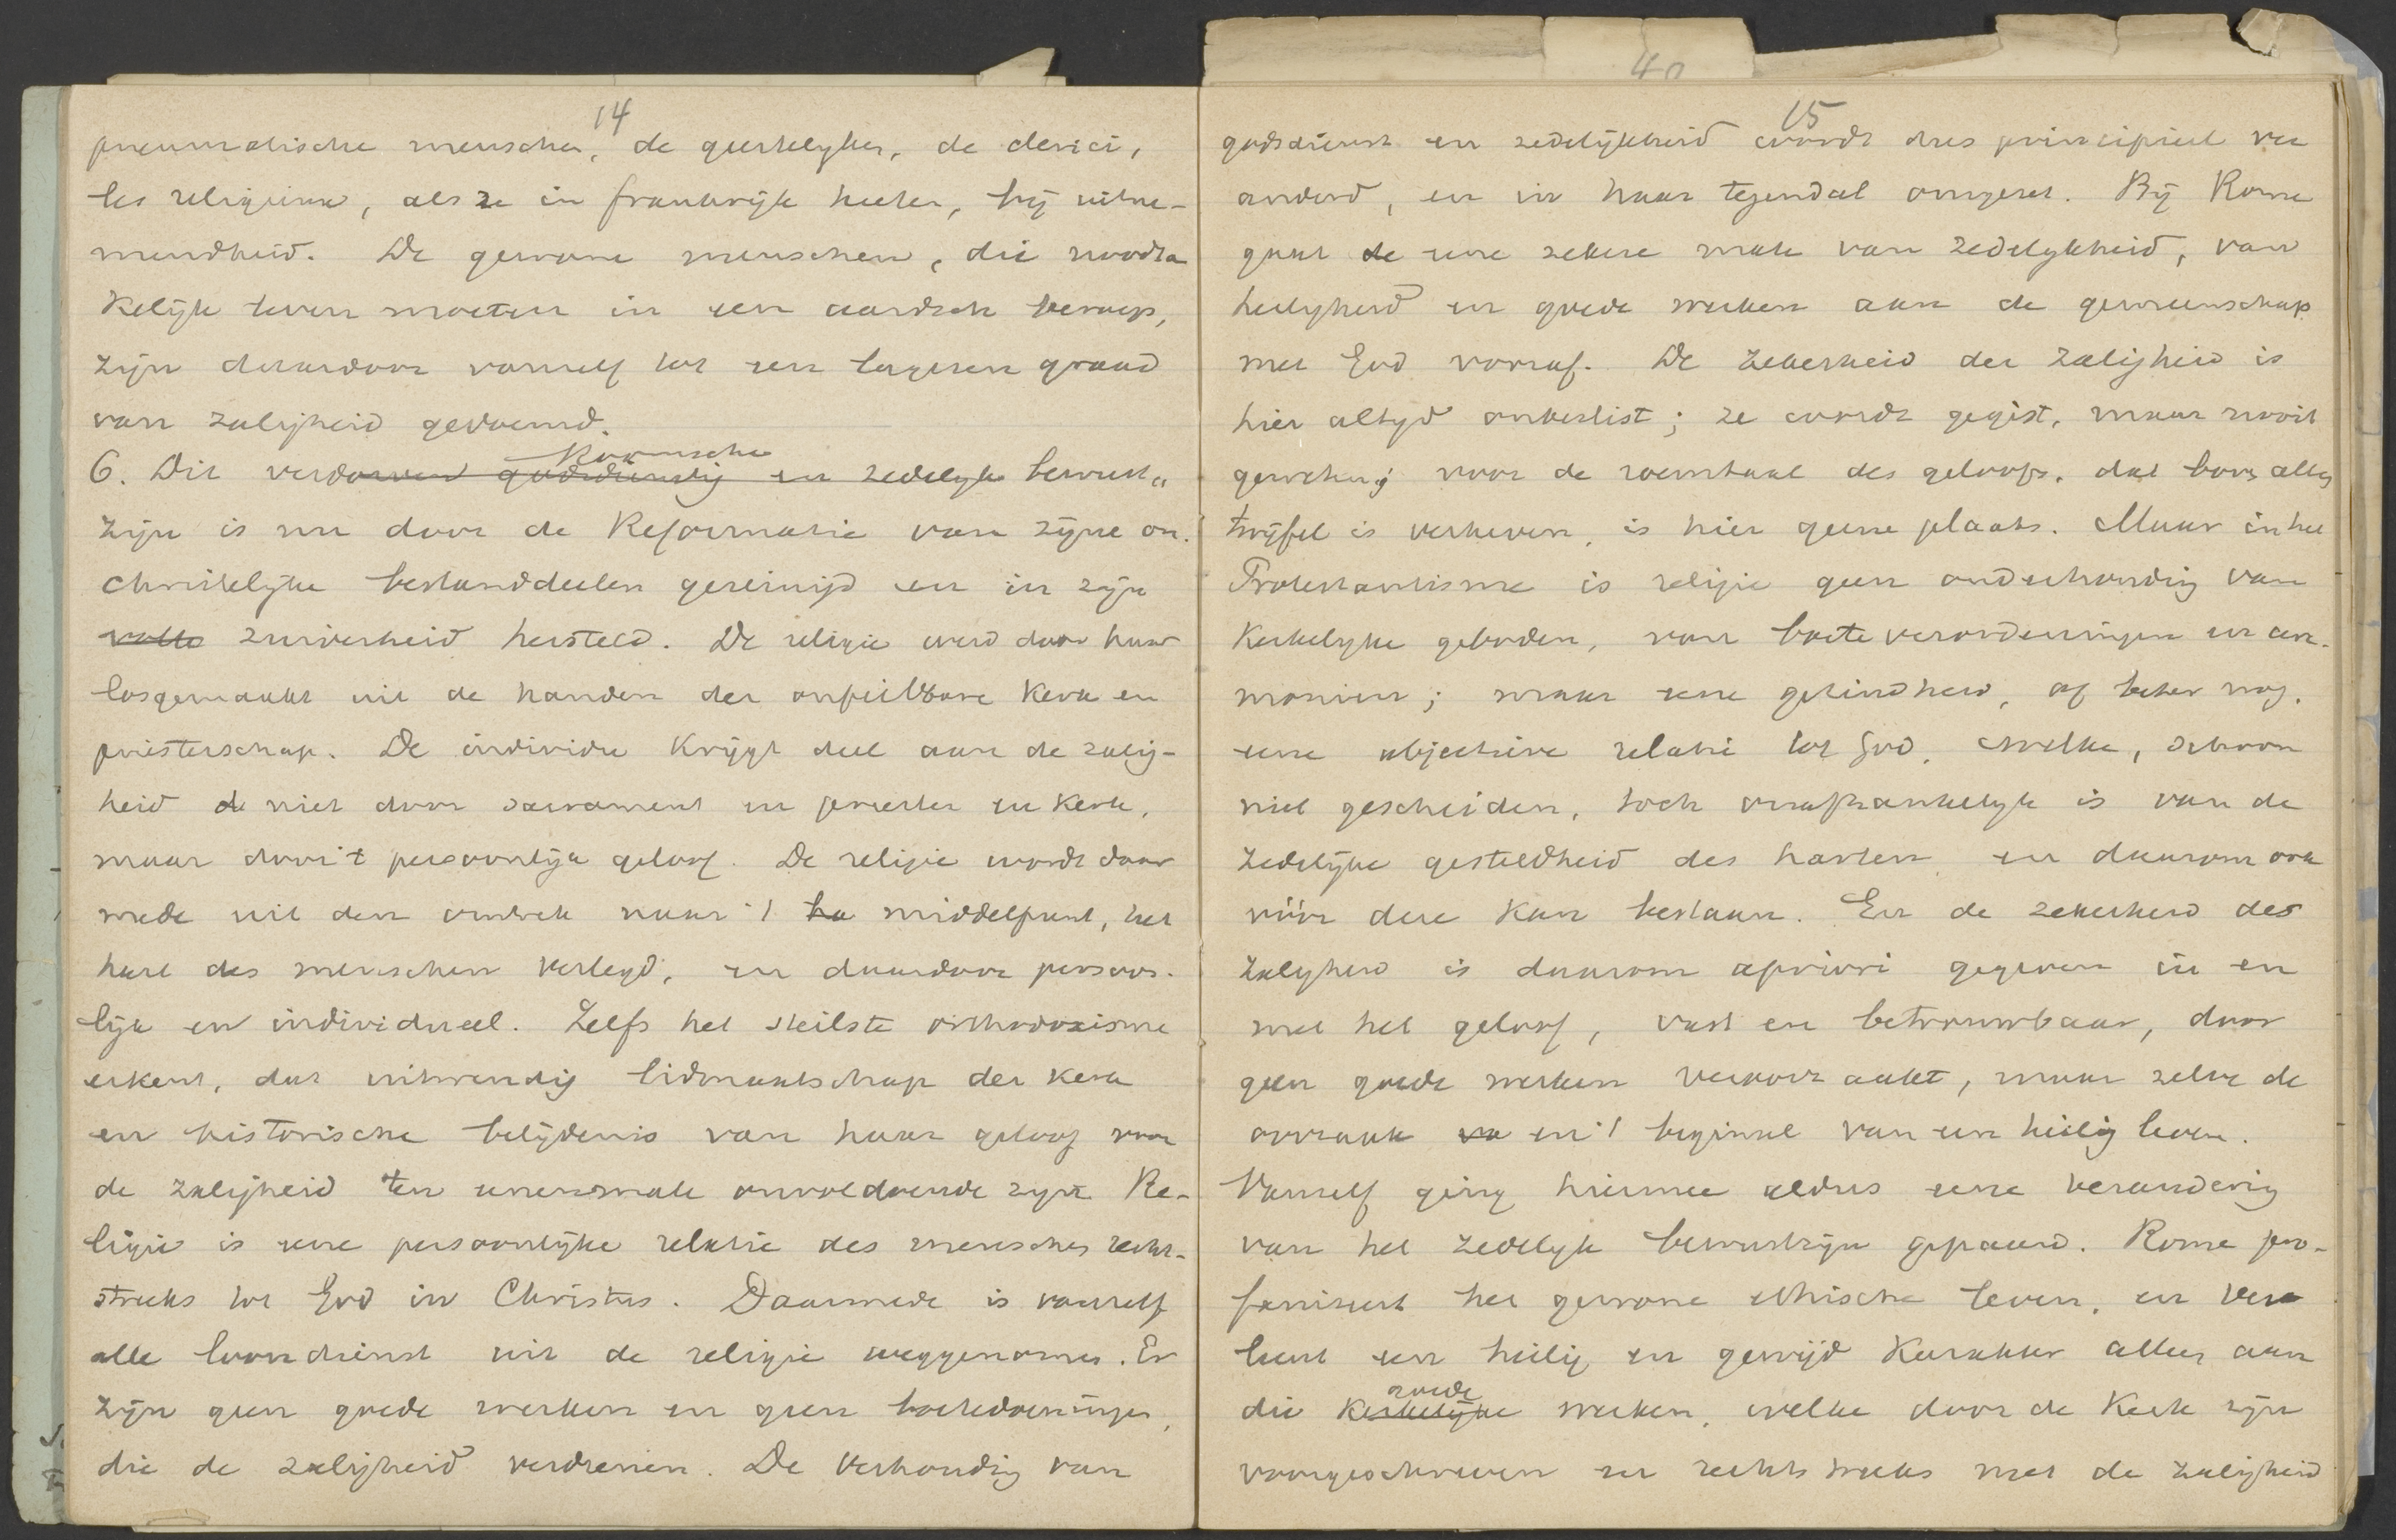 14
pneumatische menschen, de geestelyken, de clerici,
les religieux, als ze in frankrijk heeten, bij uitne-
mendheid. De gewone menschen, die noodza
kelijk leven moeten in een aardsch beroep,
zijn daardoor vanzelf tot een lageren graad
van zaligheid gedoemd.
Roomsche
6. Dit verdorven godsdienstig en zedelyk bewust„
zijn is nu door de Reformatie van zijne on-
christelyke bestanddeelen gereinigd en in zijn
volle zuiverheid hersteld. De religie werd door haar
losgemaakt uit de handen der onfeilbare Kerk en
priesterschap. De individu Krijgt deel aan de zalig-
heid de niet door sacrament en priester en Kerk,
maar door 't persoonlijk geloof. De religie wordt daar
mede uit den omtrek naar 't ha middelpunt, het
hart des menschen verlegd, en daardoor persoon-
lijk en individueel. Zelfs het steilste orthodoxisme
erkent, dat uitwendig lidmaatschap der Kerk
en historische belijdenis van haar geloof voor
de zaligheid ten eenenmale onvoldoende zijn. Re-
ligie is eene persoonlijke relatie des menschen recht-
streeks tot God in Christus. Daarmede is vanzelf
alle loondienst uit de religie weggenomen. Er
zijn geen goede werken en geen boetedoeningen,
die de zaligheid verdienen. De verhouding van
40
15
godsdienst en zedelijkheid wordt dus principieel ver
anderd, en in haar tegendeel omgezet. Bij Rome
gaat de eene zekere mate van zedelykheid, van
heiligheid en goede werken aan de gemeenschap
met God vooraf. De zekerheid der zaligheid is
hier altyd onbeslist; ze wordt gegist, maar nooit
geweten; voor de roemtaal des geloofs, dat boven alle
twijfel is verheven, is hier geene plaats. Maar in het
Protestantisme is religie geen onderhouding van
Kerkelyke geboden, van boete verordeningen en cere-
moniën; maar eene gezindheid, of beter nog,
eene objectieve relatie tot God, welke, schoon
niet gescheiden, toch onafhankelyk is van de
zedelijke gesteldheid des harten en daarom ook
vóór deze Kan bestaan. En de zekerheid des
zaligheid is daarom apriori gegeven in en
met het geloof, vast en betrouwbaar, door
geen goede werken veroorzaakt, maar zelve de
oorzaak va en 't beginsel van een heilig leven.
Vanzelf ging hiermee aldus eene verandering
van het zedelyk bewustzijn gepaard. Rome pro-
faniseert het gewone ethische leven, en ver
leent een heilig en gewijd Karakter alleen aan
goede
die Kerkelijke werken, welke door de Kerk zijn
voorgeschreven en rechtstreeks met de zaligheid